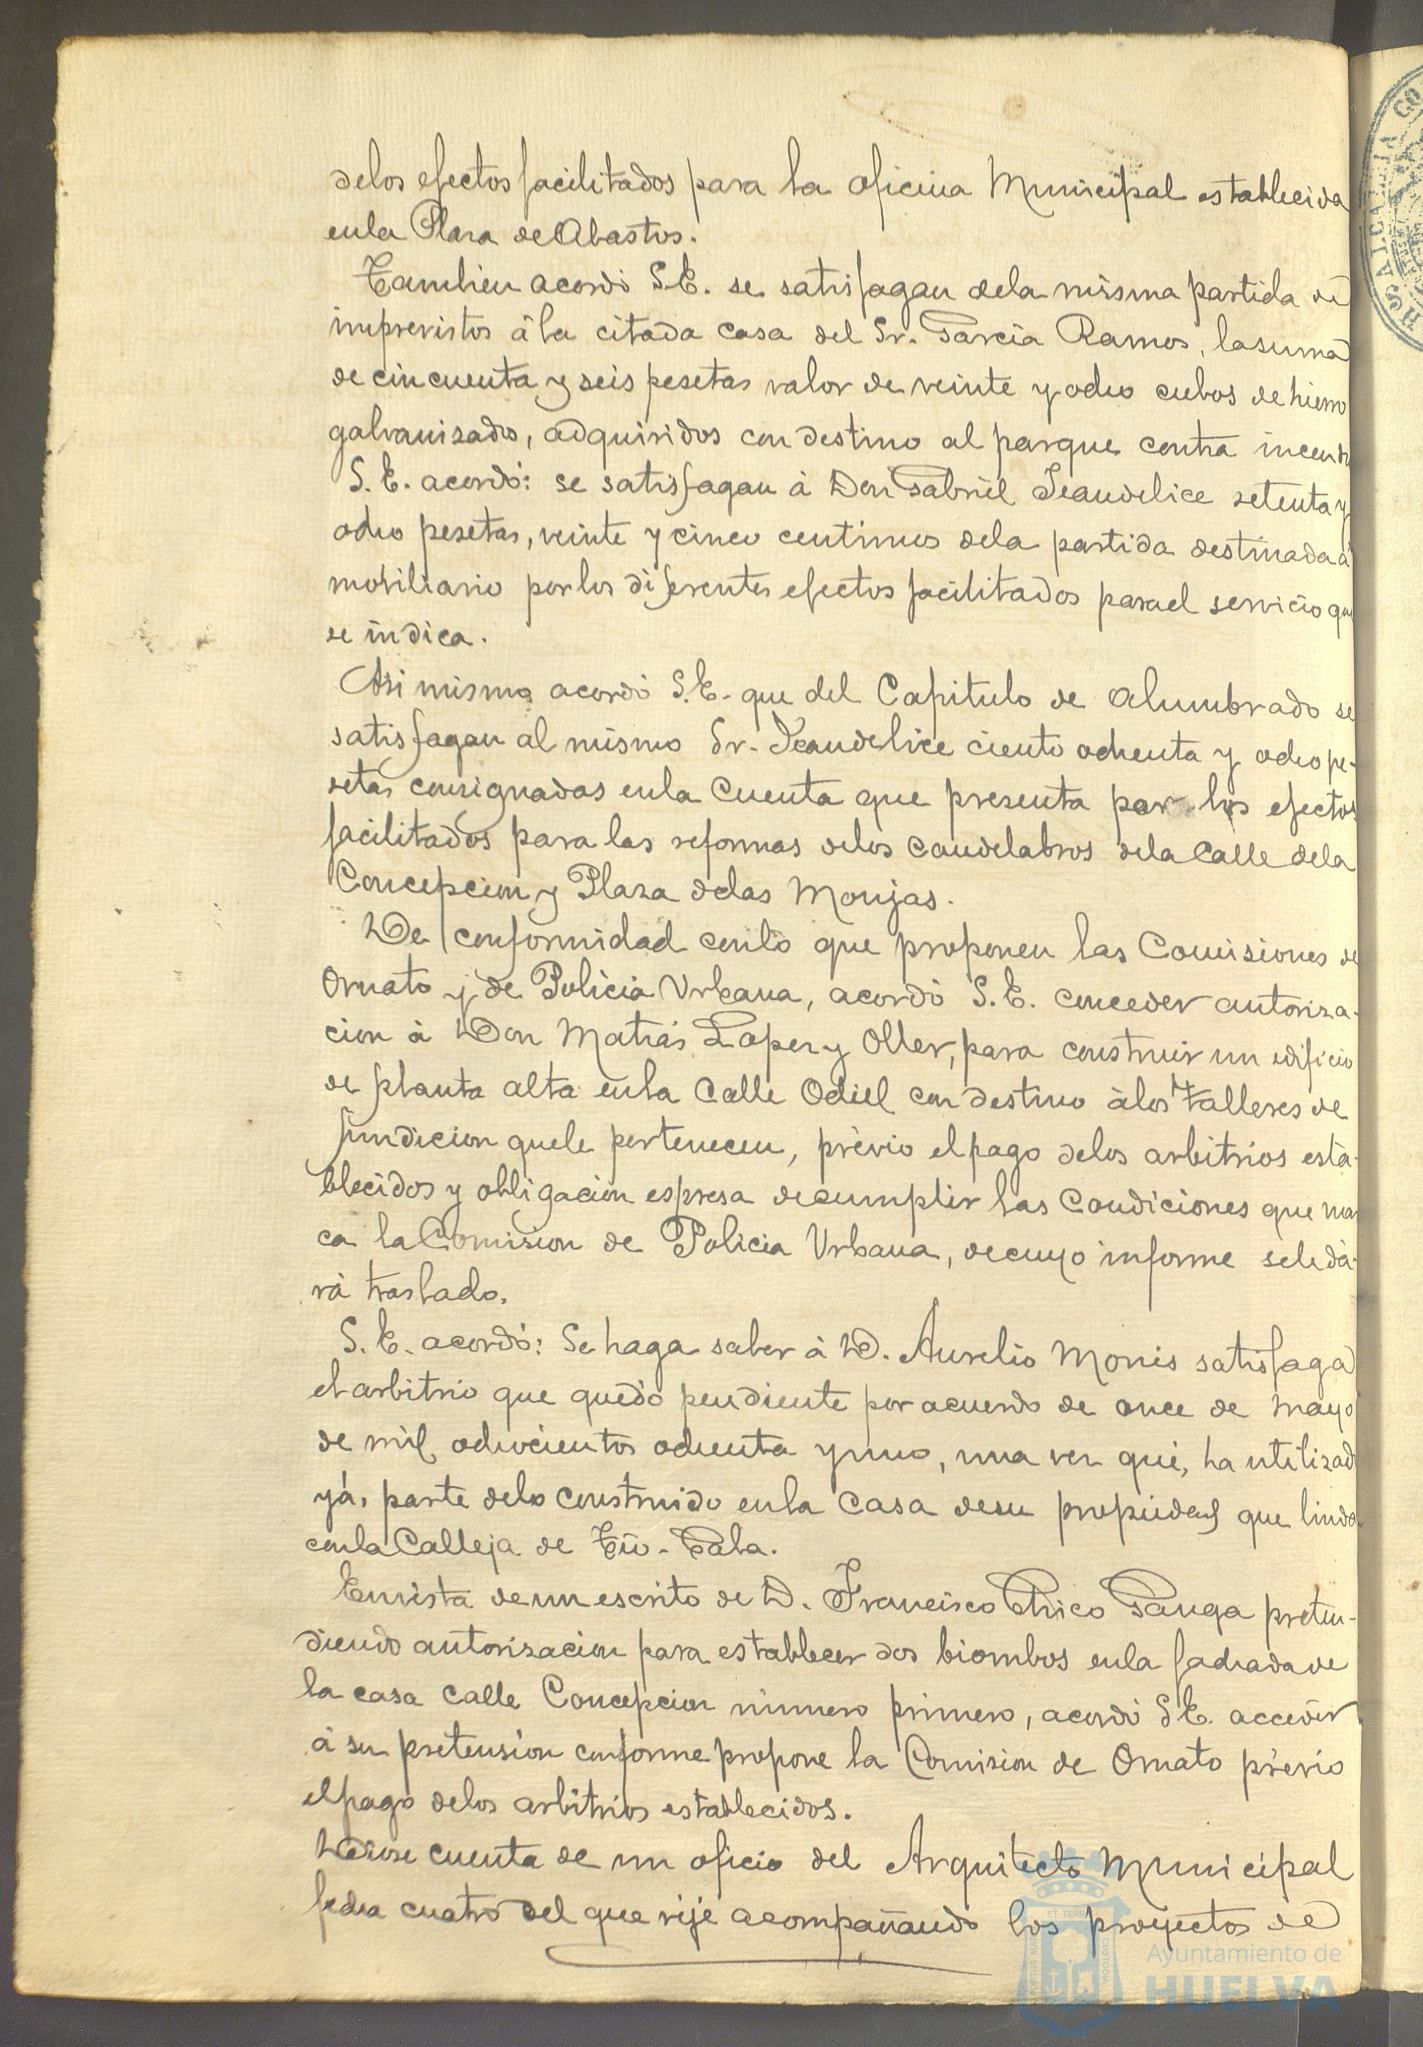 delos efectos facilitados para la oficina Municipal establecida
enla Plaza de Abastos.
Tambien acordó S.E. se satisfagan dela misma partida de
imprevistos á la citada casa del Sr. Garcia Ramos, lasuma
de cincuenta y seis pesetas valor de veinte y ocho cubos de hierro
galvanizado, adquiridos con destino al parque contra incendi
S. E. acordó: se satisfagan á Don Gabriel Jeandelice setenta y
ocho pesetas, veinte y cinco centimos dela partida destinada á
mobiliario porlos diferentes efectos facilitados parael servicio que
se indica.
Asi mismo acordó S.E. que del Capitulo de Alumbrado se
satisfagan al mismo Sr. Jeandelice ciento ochenta y ocho pe-
setas consignadas enla cuenta que presenta por los efectos
facilitados para las reformas delos candelabros dela Calle dela
Concepcion y Plaza delas Monjas.
De conformidad conlo que proponen las Comisiones de
Ornato y de Policia Urbana, acordó S.E. conceder autoriza-
cion á Don Matias Lopez y Oller, para construir un edificio
de planta alta enla Calle Odiel con destino álos talleres de
fundicion quele pertenecen, prévio el pago delos arbitrios esta-
blecidos y obligacion espresa decumplir las Condiciones que mar
ca la Comision de Policia Urbana, decuyo informe sele da-
rá traslado.
S. E. acordó: Se haga saber á D. Aurelio Monis satisfaga
el arbitrio que quedó pendiente por acuerdo de once de Mayo
de mil ochocientos ochenta y uno, una vez que, ha utilizad
yá, parte delo construido enla Casa desu propiedad que linda
conla Calleja de Tio-Pala.
Envista de un escrito de D. Francisco Chico Ganga preten-
diendo autorizacion para establecer dos biombos enla fachada de
la casa calle Concepcion número primero, acordó S.E. acceder
á su pretension conforme propone la Comision de Ornato prévio
el pago delos arbitrios establecidos.
Diose cuenta de un oficio del Arquitecto Municipal
fecha cuatro del que rije acompañando los proyectos de
Ayuntamiento de
HUELVA